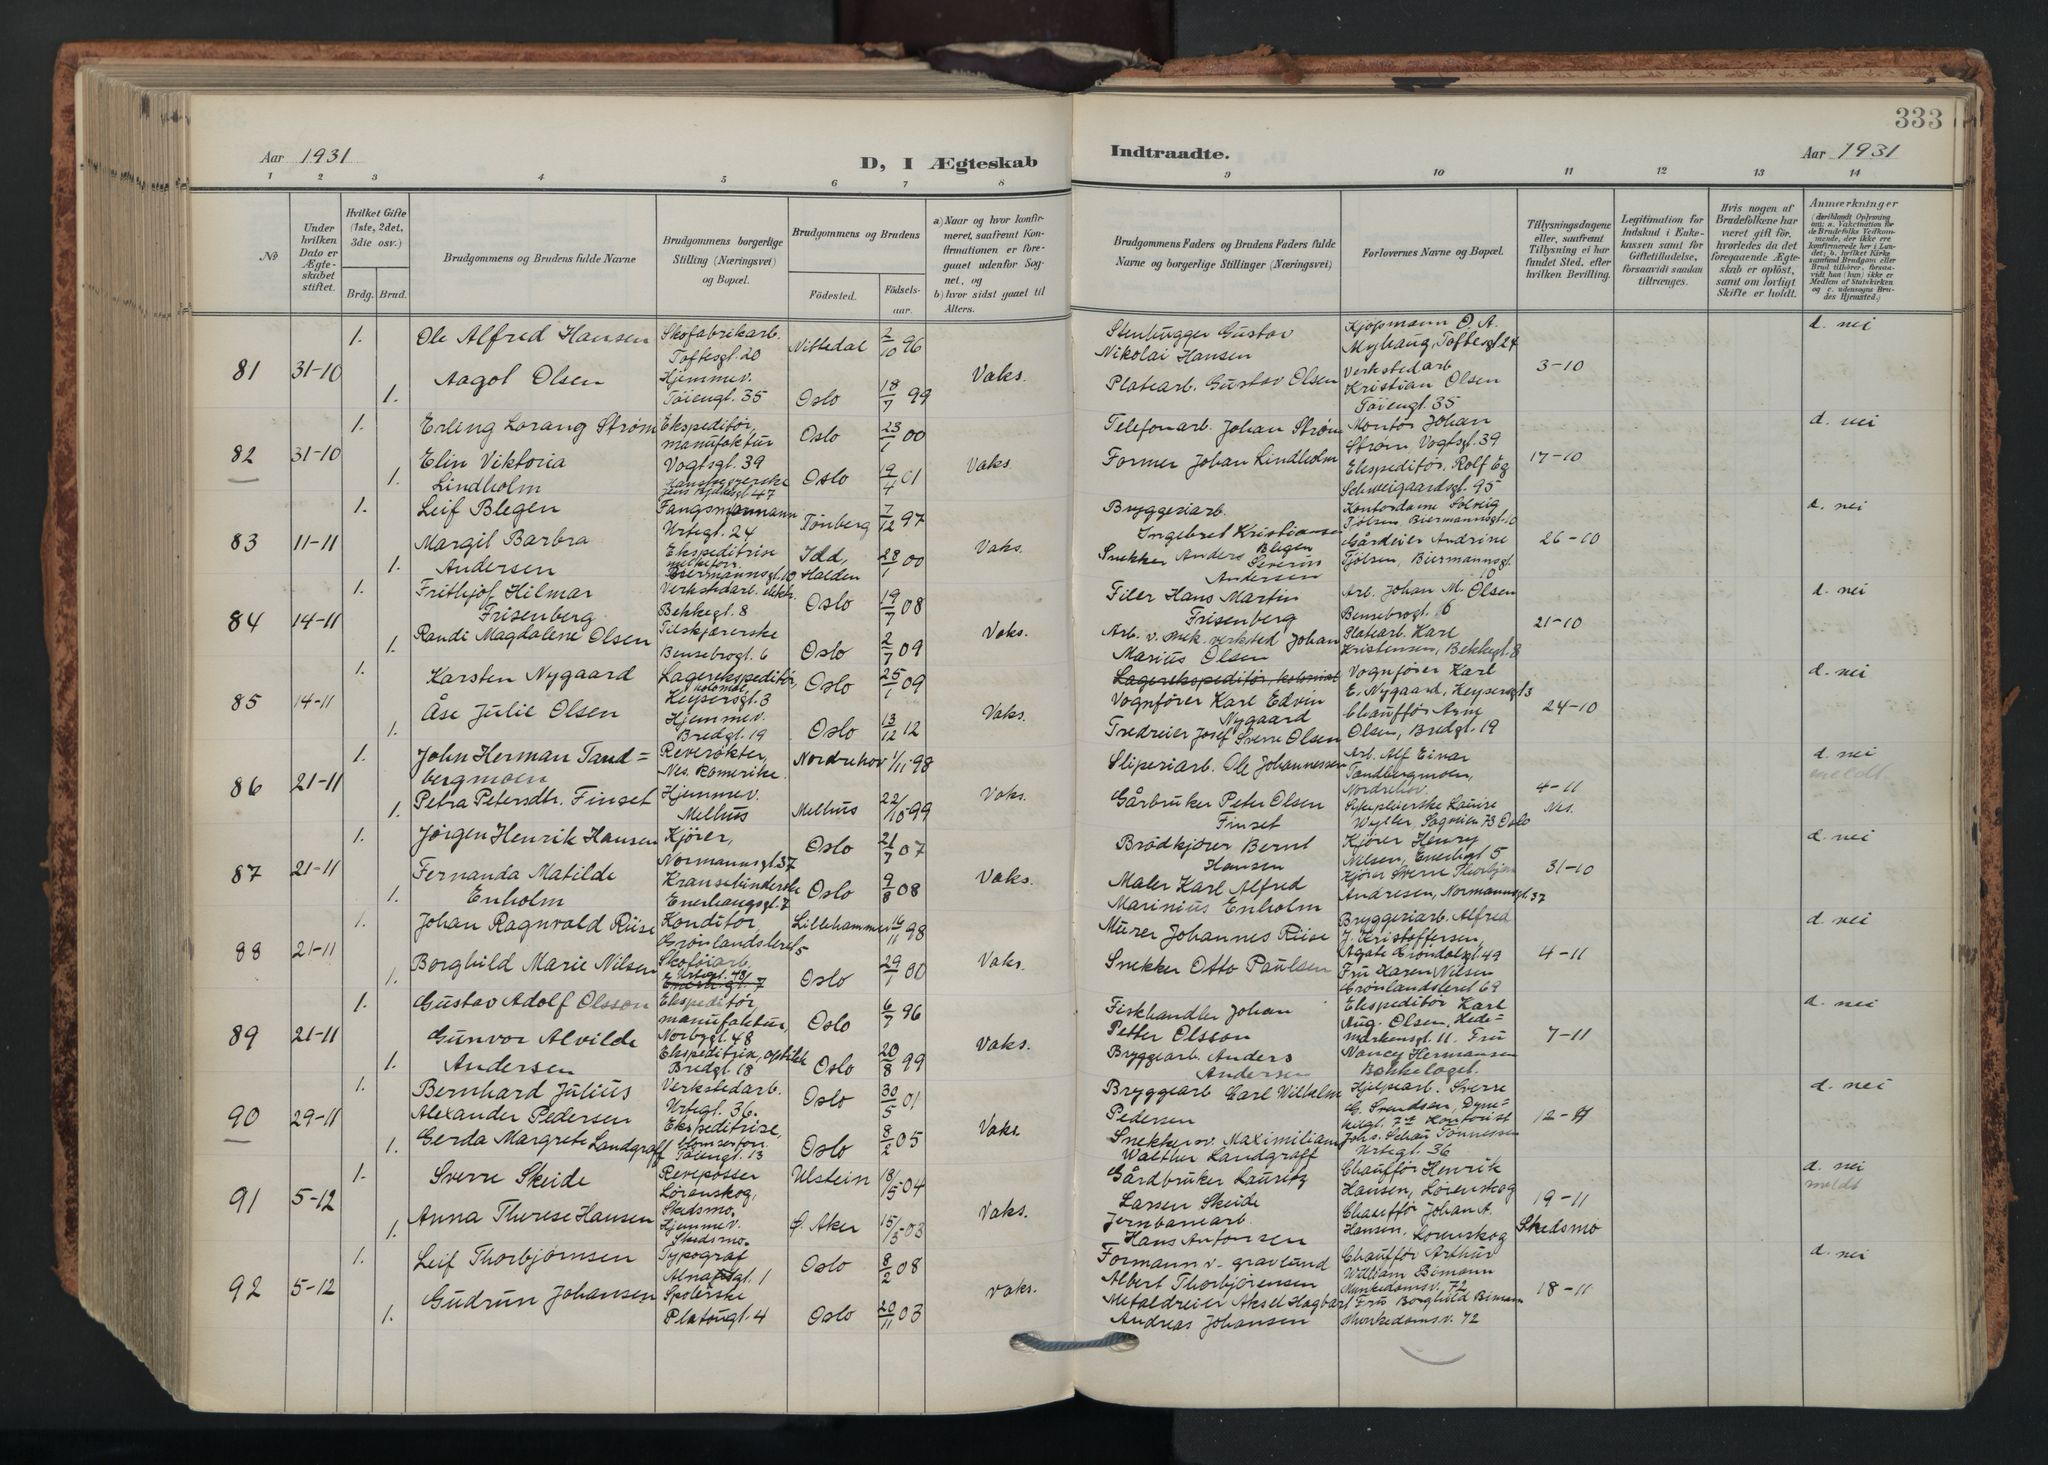 333
Aar 1931
D, I Ægteskab
Indtraadte.
Aar 1931
1 2 3 4 5 6 7 8 9 10 11 12 13 14
No
Under hvilken Dato er Ægteskabet stiftet.
Hvilket Gifte (1ste, 2det, 3die osv.)
Brdg. Brud.
Brudgommens og Brudens fulde Navne
Brudgommens borgerlige Stilling (Næringsvei) og Bopæl.
Brudgommens og Brudens
Fødested.
Fødselsaar.
a) Naar og hvor konfirmeret, saafremt Konfirmationen er foregaaet udenfor Sognet, og
b) hvor sidst gaaet til Alters.
Brudgommens Faders og Brudens Faders fulde Navne og borgerlige Stillinger (Næringsvei)
Forlovernes Navne og Bopæl.
Tillysningsdagene eller, saafremt Tillysning ei har fundet Sted, efter hvilken Bevilling.
Legitimation for Indskud i Enkekassen samt for Giftetilladelse, forsaavidt saadan tiltrænges.
Hvis nogen af Brudefolkene har været gift før, hvorledes da det foregaaende Ægteskab er opløst, samt om lovligt Skifte er holdt.
Anmærkninger
81 31-10 1. Ole Alfred Hansen Skofabrikarb. Toftesgt. 20 Nittedal 2/10 96 Vaks. Stenhugger Gustav Nikolai Hansen Kjøpmann O. A. Myhaug, Toftesgt 24 3-10 d. nei
1. Aagot Olsen Hjemmev. Tøiengt. 35 Oslo 18/7 99 Platearb. Gustav Olsen Verkstedarb Kristian Olsen Tøiengt. 35
82 31-10 1. Erling Lorang Strøm Ekspeditør, manufaktur Vogtsgt. 39 Oslo 23/1 00 Vaks. Telefonarb. Johan Strøm Montør Johan Strøm Vogtsgt. 39 17-10 d. nei
1. Elin Viktoria Lindholm Jens Bjelkesgt 47 Oslo 19/4 01 Former Johan Lindholm Ekspeditør, Rolf Eg Schweigaardsgt. 95
83 11-11 1. Leif Blegen Fangstmann Urtegt. 24 Tønberg 7/12 97 Vaks. Bryggeriarb. Ingebret Kristiansen Blegen Kontordame Solveig Tjølsen Biermannsgt. 10 26-10 d. nei
1. Margit Barbra Andersen Ekspeditrise Biermannsgt. 10 Idd, Halden 28/1 00 Snekker Anders Severin Andersen Gårdeier Andrine Tjølsen, Biermannsgt. 10
84 14-11 1. Frithjof Hilmar Frisenberg Verkstedarb. elektr. Bekkegt. 8 Oslo 19/7 08 Vaks. Filer Hans Martin Frisenberg Arb. Johan M. Olsen Bensebrogt. 6 21-10 d. nei
1. Randi Magdalene Olsen Tilskjærerske Bensebrogt. 6 Oslo 2/7 09 Arb. v. mek. verksted Johan Marius Olsen Platearb. Karl Kristensen, Bekkegt. 8
85 14-11 1. Karsten Nygaard Lagerekspeditør, kolonial Keysersgt. 3 Oslo 25/1 09 Vaks. Lagerekspeditør, kolonial Vognfører Karl Edvin Nygaard Vognfører Karl E. Nygaard, Keysersgt 3 24-10 d. nei
1. Åse Julie Olsen Hjemmev. Bredgt. 19 Oslo 13/12 12 Tredreier Josef Sverre Olsen Chauffør Arne Olsen, Bredgt. 19
86 21-11 1. John Herman Tandbergmoen Reverøkter, Nes Romerike. Nordrehov 1/11-98 Vaks. Sliperiarb. Ole Johannessen Arb. Alf Einar Tandbergmoen, Nordrehov. 4-11 Nes. d. nei
1. Petra Petersdtr. Finset Hjemmev. Melhus Melhus 22/10-99 Gårbruker Peter Olsen Finset Sykepleierske Lauise Wyller, Sagveien 73 Oslo
87 21-11 1. Jørgen Henrik Hansen Kjører, Normannsgt. 37 Oslo 21/7 07 Vaks. Brødkjører Bernt Hansen Kjører Henry Nilsen, Enerhgt 5 31-10 d. nei
1. Fernanda Matilde Enholm Kransebinderske Enerhaugsgt. 7 Oslo 9/8 08 Maler Karl Alfred Marinius Enholm Kjører Sverre Thorbjørn Andresen, Normannsgt. 37
88 21-11 1. Johan Ragnvald Riise Konditor Grønlandsleret 5 Lillehammer 16/11 98 Vaks. Murer Johannes Riise Bryggeriarb. Alfred J. Kristoffersen, Agate Grøndalsgt. 49 4-11 d. nei
1. Borghild Marie Nilsen Skotøiarb. Oslo 29/1 00 Snekker Otto Paulsen Fru Karen Nilsen Grønlandsleret 69
89 21-11 1. Gustav Adolf Olsson Ekspeditør, manufaktur, Norbygt. 48 Oslo 6/7 96 Vaks. Fiskhandler Johan Petter Olsson Ekspeditør Karl Aug. Olsen, Hedemarkensgt. 11. 7-11 d. nei
1. Gunvor Alvilde Andersen Ekspeditrise, optikk Bredgt. 18 Oslo 20/8 99 Bryggearb. Anders Andersen Fru Nancy Hermansen Bekkelaget.
90 29-11 1. Bernhard Julius Alexander Pedersen Verkstedarb. Urtegt. 36. Oslo 30/5 01 Vaks. Bryggearb Carl Wilhelm Pedersen Hjelpearb. Sverre G. Svendsen, 12-11 d. nei
1. Gerda Margrete Landgraff Ekspeditrise, blomserforr. Tøiengt. 13 Oslo 8/2 05 Snekkerv. Maximilian Walther Landgraff Kontorist Johs. Schau Tønnessen Urtegt. 36
91 5-12 1. Sverre Skeide Revepasser Lørenskog, Skedsmo. Ulstein 18/5-04 Vaks. Gårdbruker Lauritz Larsen Skeide Chauffør Henrik Hansen, Lørenskog 19-11 Skedsmo d. nei meldt
1. Anna Therese Hansen Hjemmev. Skedsmo. Ø. Aker 15/5-03 Jernbanearb. Hans Antonsen Chauffør Johan A. Hansen, Lørenskog
92 5-12 1. Leif Thorbjørnsen Typograf Alnafetgt. 1 Oslo 8/2 08 Vaks. Formann v. gravlund Albert Thorbjørensen Chauffør Arthur William Bimann Munkedamsv. 72 18-11 d. nei
1. Gudrun Johansen Spolerske Platougt. 4 Oslo 20/11 03 Metaldreier Aksel Hagbart Andreas Johansen Fru Borghild Bimann Munkedamsv. 72